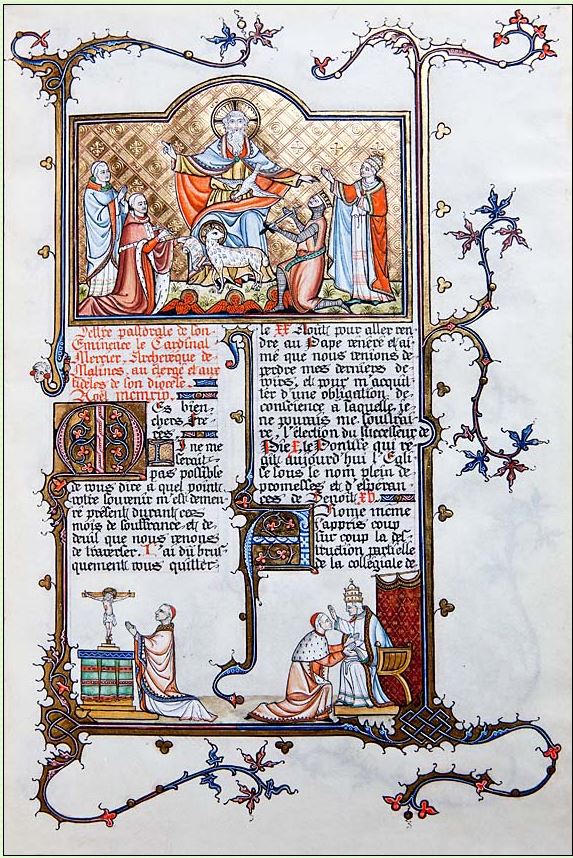 Lettre pastorale de son
Eminence le Cardinal
Mercier, Archevêque de
Malines, au clergé et aux
fidèles de son diocèse.
Noël mcmxiv.
Mes bien
chers Frè
res,
Il ne me
serait
pas possible
de vous dire à quel point
votre souvenir m'est demeu
ré présent durant ces
mois de souffrance et de
deuil que nous venons
de traverser. J'ai dû brus
quement vous quitter
le XX Août pour aller ren
dre au Pape vénéré et ai
mé que nous venions de
perdre mes derniers de
voirs, et pour m'acquit
ter d'une obligation de
conscience à laquelle je
ne pouvais me soustrai
re, l'élection du successeur de
Pie X, le Pontife qui ré
git aujourd'hui l'Egli
se sous le nom plein de
promesses et d'espéran
ces de Benoît XV.
A Rome même
j'appris coup
sur coup la des
truction partielle
de la collégiale de